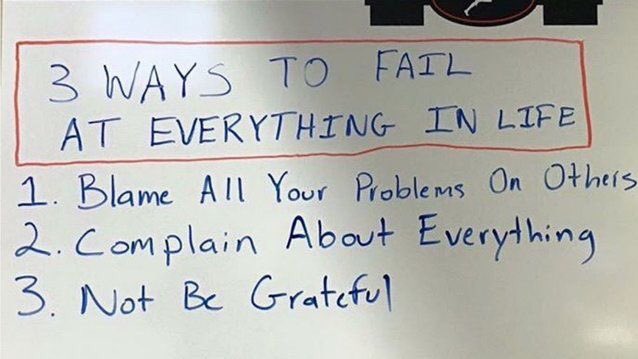 3 WAYS TO FAIL
AT EVERYTHING IN LIFE
1. Blame All Your Problems On Others
2. Complain About Everything
3. Not Be Grateful